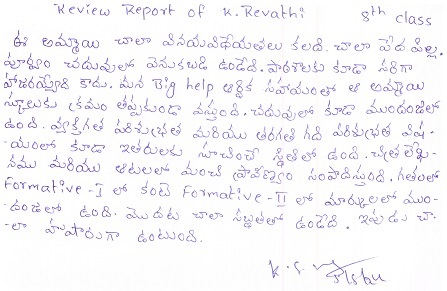 Review Report of K. Revathi 8th class
ఈ అమ్మాయి చాలా వినయవిధేయతలు కలది. చాలా పేద పిల్ల.
పూర్వం చదువులో వెనుకబడి ఉండేది. పాఠశాలకు కూడా సరిగా
హాజరయ్యేది కాదు. మన Big help ఆర్థిక సహాయంతో ఆ అమ్మాయి
స్కూలుకు క్రమం తప్పకుండా వస్తుంది. చదువులో కూడా ముందంజలో
ఉంది. వ్యక్తిగత పరిశుభ్రత మరియు తరగతి గది పరిశుభ్రత విష-
-యంలో కూడా ఇతరులకు సూచించే స్థితిలో ఉంది. చిత్రలేఖ-
నము మరియు ఆటలలో మంచి ప్రావీణ్యం సంపాదిస్తుంది. గతంలో
Formative-I లో కంటె Formative-II లో మార్కులలో ముం-
-దంజలో ఉంది. మొదట చాలా స్తబ్ధతతో ఉండేది. ఇపుడు చా-
-లా హుషారుగా ఉంటుంది.
K. S.